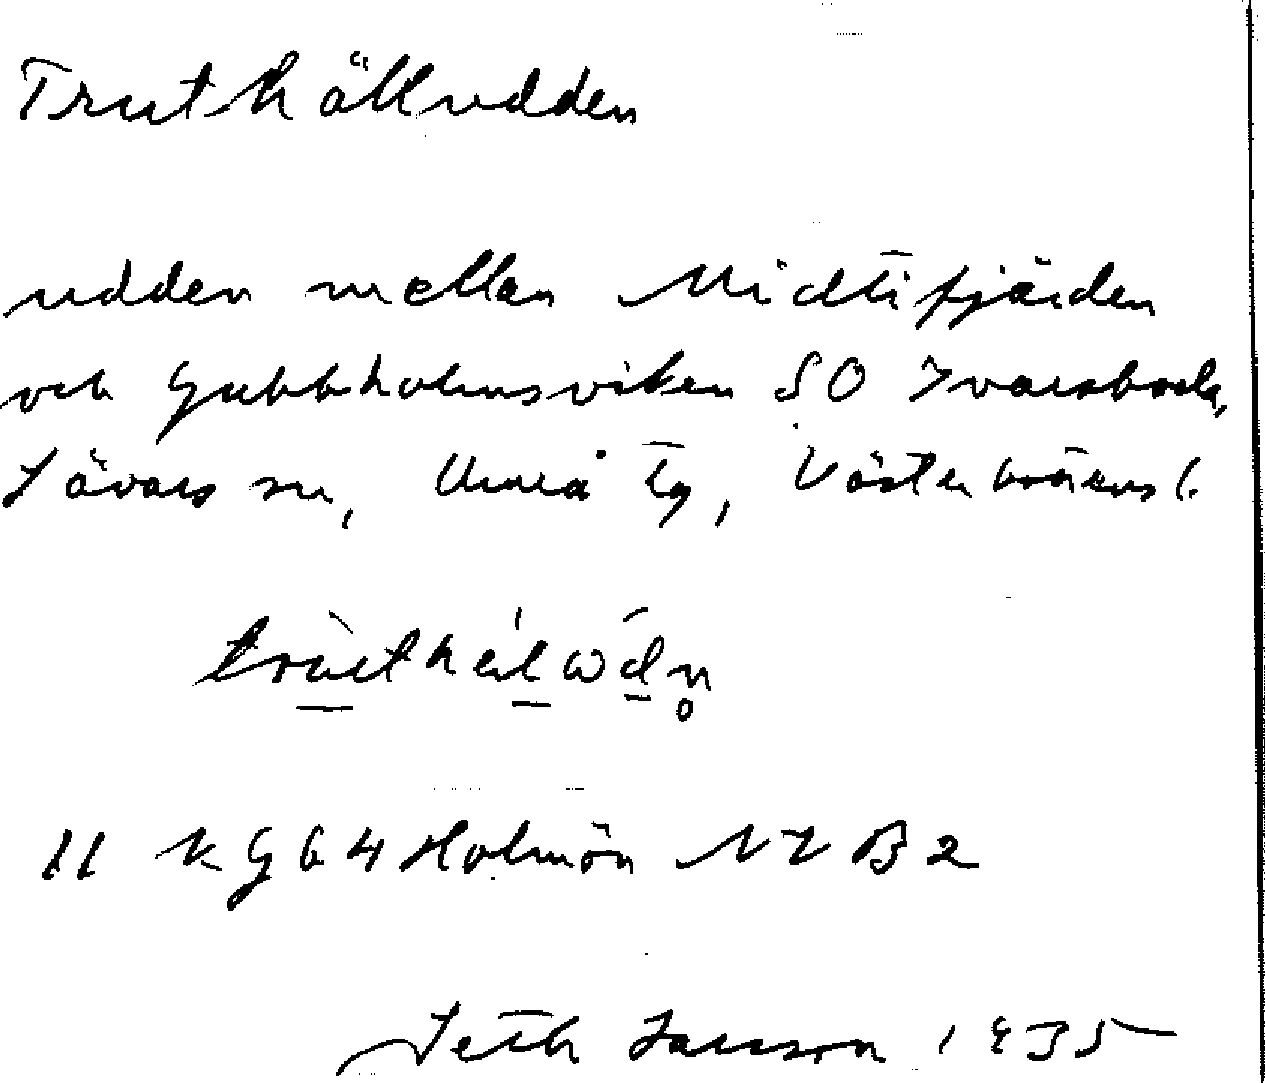 Truthälludden
udden mellan Midtifjärden
och Gubbholmsviken SO Ivarsboda,
Sävars sn, Umeå tg, Västerbottens l.
trùthélωdn̥
11 KG 64 Holmön NV B2
Seth Jansson 1935